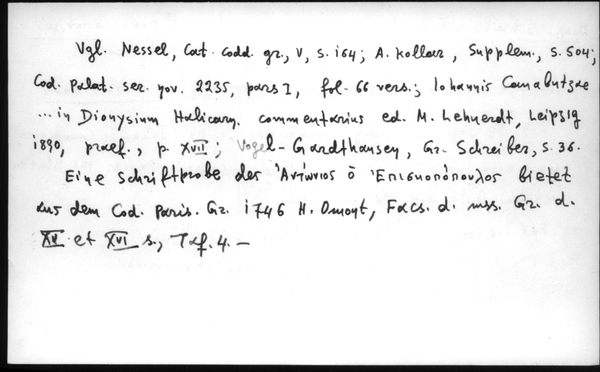 Vgl. Nessel, Cat. codd. gr., V, S. 164; A. Kollar, Supplem., S. 504;
Cod. Palat. ser. nov. 2235, pars I, fol. 66 vers.; Iohannis Canabutzae
... in Dionysium Halicarn. commentarius ed. M. Lehnerdt, Leipzig
1890, praef., p. XVII; Vogel-Gardthausen, Gr. Schreiber, S. 36.
Eine Schriftprobe des Ἀντώνιος ὁ Ἐπισκοπόπουλος bietet
aus dem Cod. Paris. Gr. 1746 H. Omont, Facs. d. mss. Gr. d.
XV et XVI s., Taf. 4. —